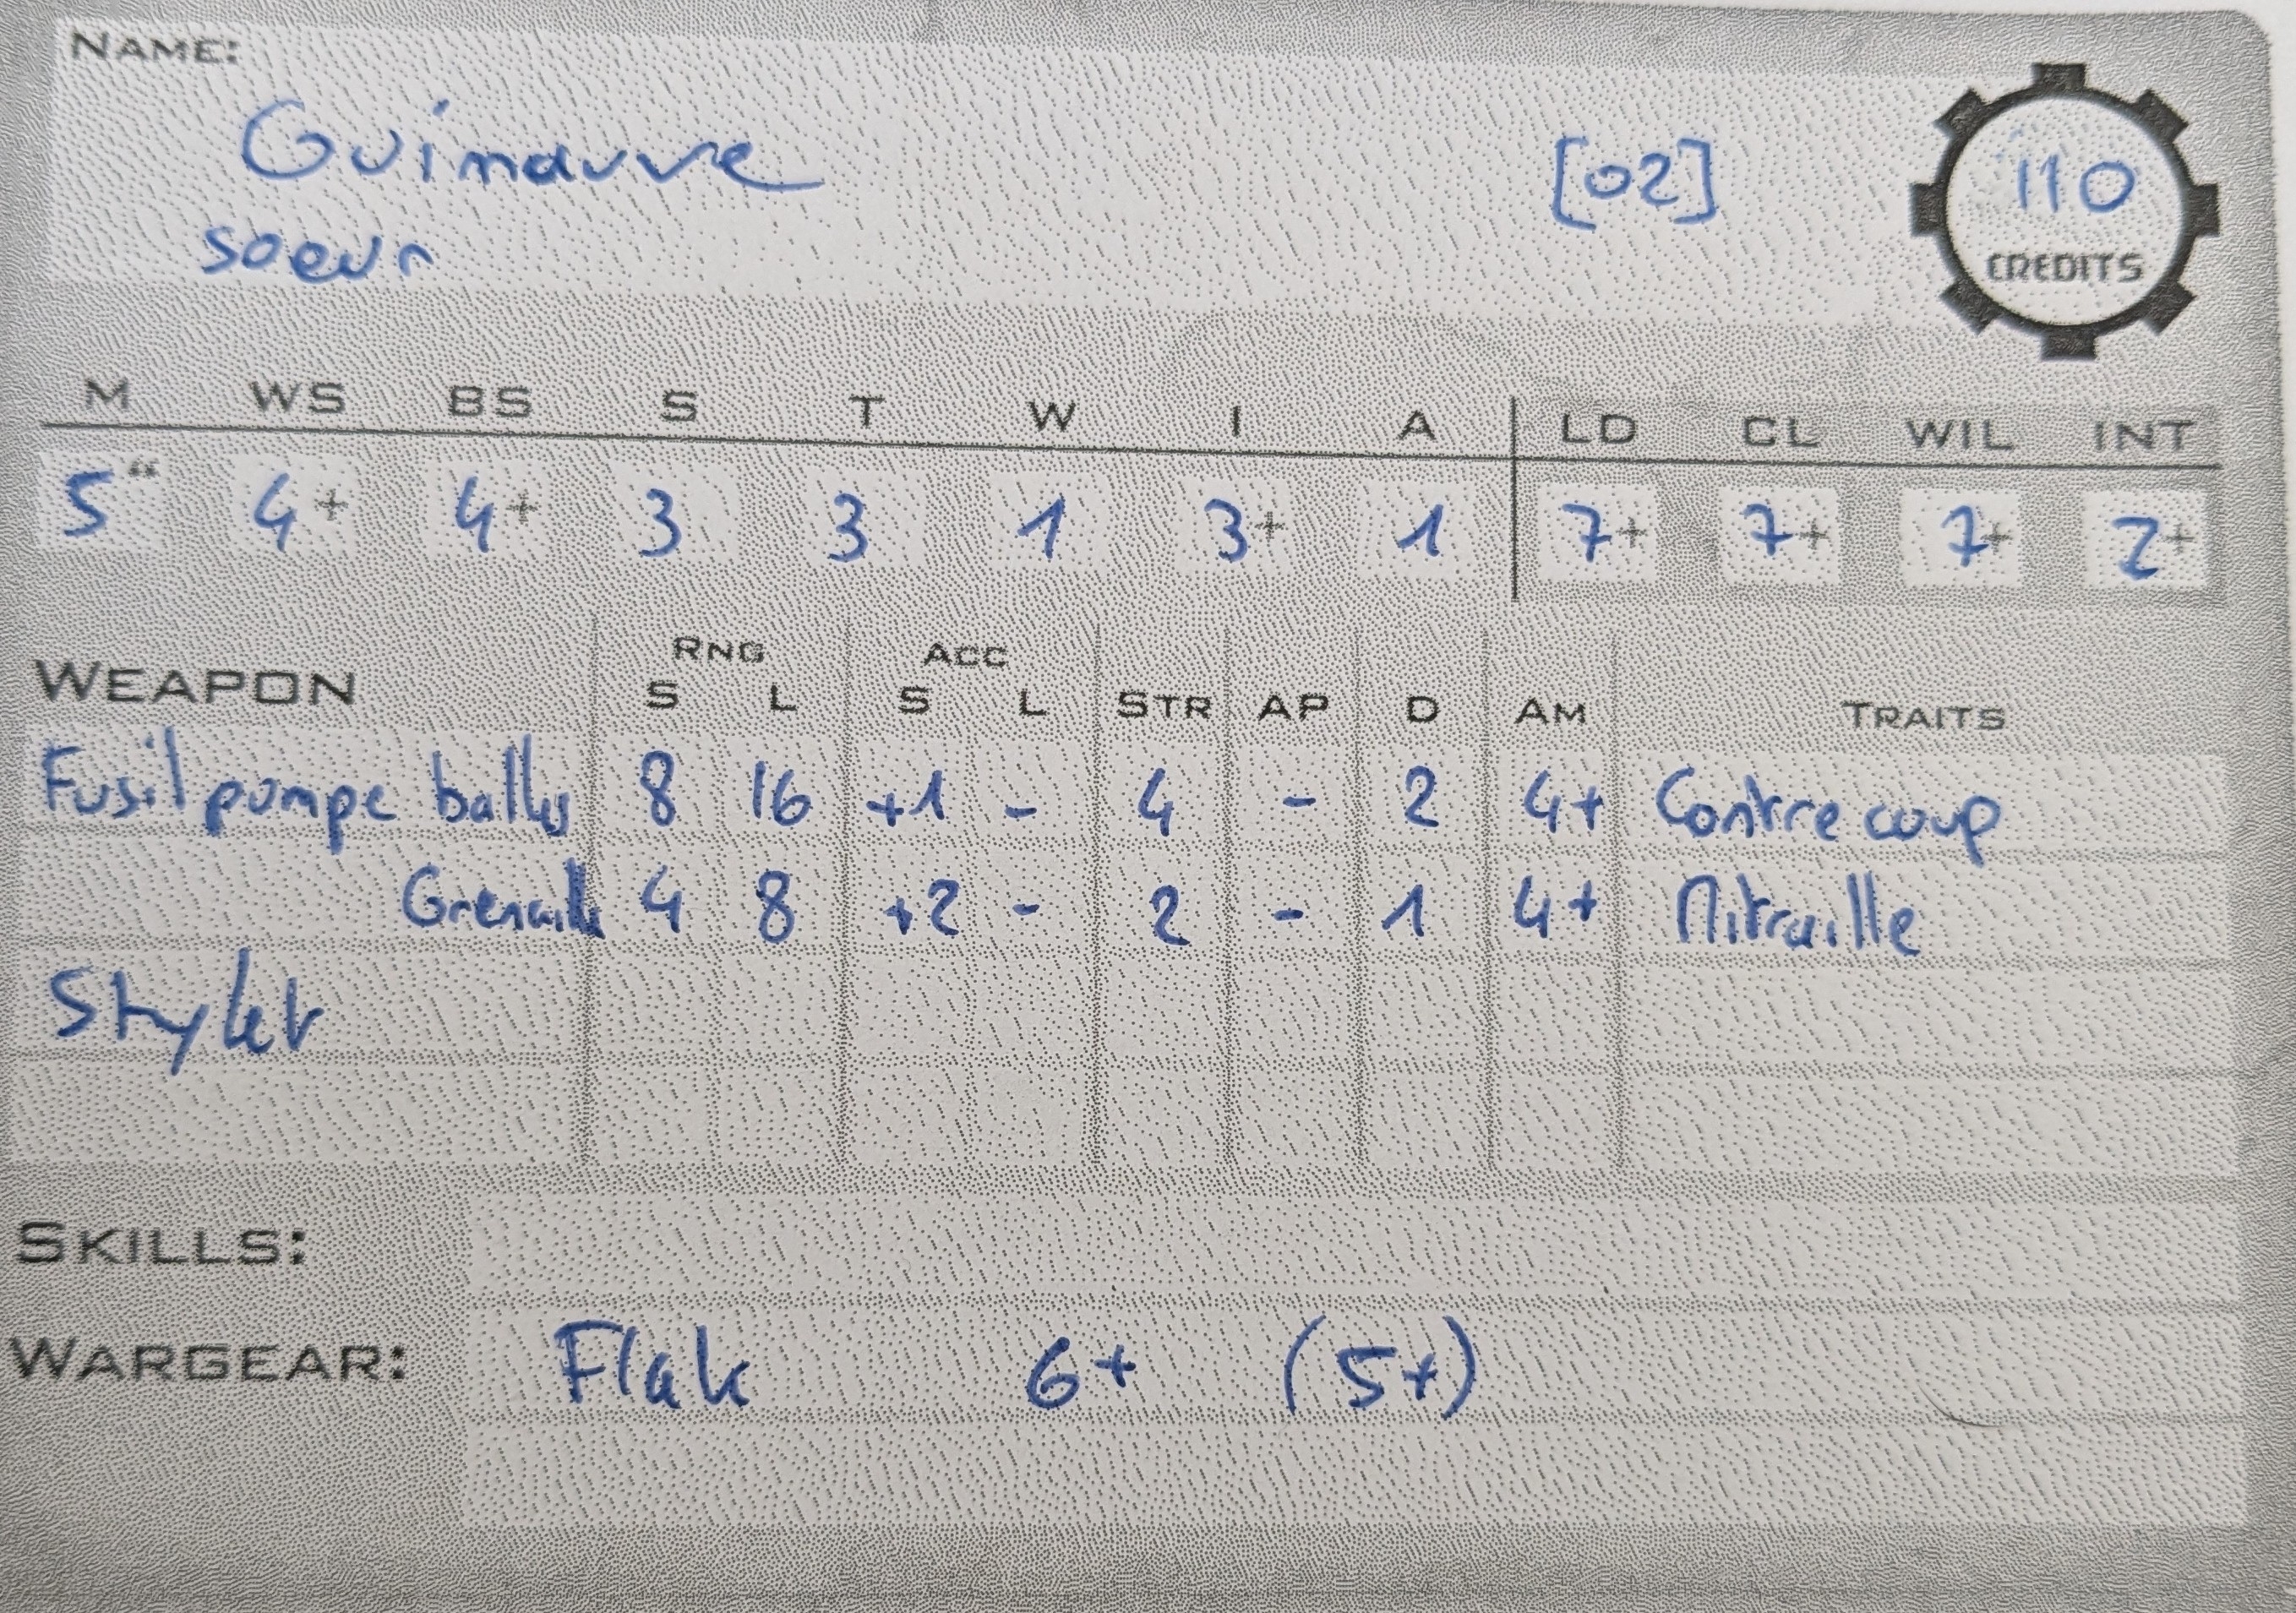 NAME:
Guimauve [02] 110
soeur CREDITS
M WS BS S T W I A LD CL WIL INT
5" 4+ 4+ 3 3 1 3+ 1 7+ 7+ 7+ 7+
RNG ACC
WEAPON S L S L STR AP D AM TRAITS
Fusil pompe balles 8 16 +1 - 4 - 2 4+ Contre coup
Grenaille 4 8 +2 - 2 - 1 4+ Mitraille
Stylet
SKILLS:
WARGEAR: Flak 6+ (5+)